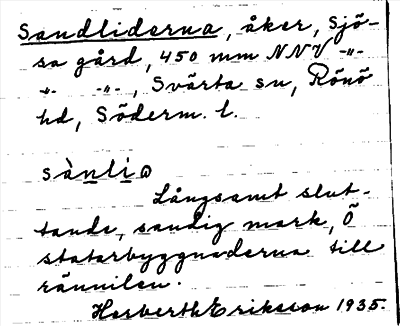 Sandliderna, åker, Sjö-
sa gård, 450 mm NNV -"-
-"- -"-, Svärta sn, Rönö
hd, Söderm. l.
sànli
Långsamt slut-
tande, sandig mark, Ö
statarbyggnaderna till
rännilen.
Herberth Eriksson 1935.